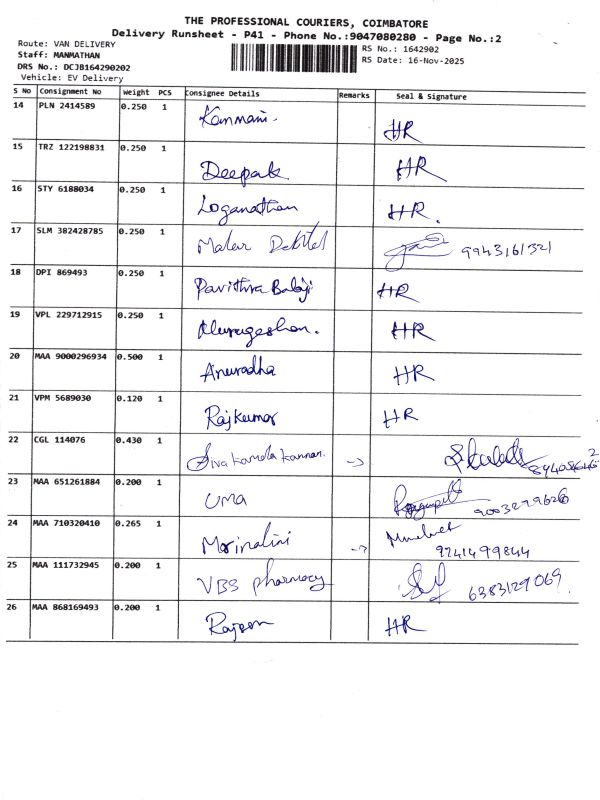 THE PROFESSIONAL COURIERS, COIMBATORE
Delivery Runsheet - P41 - Phone No.:9047080280 - Page No.:2
Route: VAN DELIVERY
Staff: MANMATHAN
DRS No.: DCJB164290202
Vehicle: EV Delivery
RS No.: 1642902
RS Date: 16-Nov-2025
S No Consignment No Weight PCS Consignee Details Remarks Seal & Signature
14 PLN 2414589 0.250 1 Kanmani. HR
15 TRZ 122198831 0.250 1 Deepak HR
16 STY 6188034 0.250 1 Loganathan HR.
17 SLM 382428785 0.250 1 Malar 9943161321
18 DPI 869493 0.250 1 Pavithra Balaji HR
19 VPL 229712915 0.250 1 Murugeshan. HR
20 MAA 9000296934 0.500 1 Anuradha HR
21 VPM 5689030 0.120 1 Rajkumar HR
22 CGL 114076 0.430 1 Siva Kamola Kannan. ->
23 MAA 651261884 0.200 1 UMA 9003279626
24 MAA 710320410 0.265 1 Morinalini -> 9741499844
25 MAA 111732945 0.200 1 VBS pharmacy 6383129069.
26 MAA 868169493 0.200 1 HR